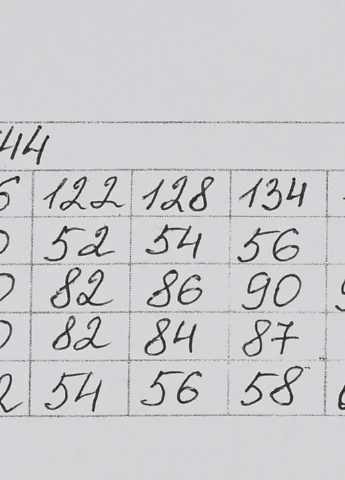 44
6 122 128 134
0 52 54 56
0 82 86 90 9
0 82 84 87
2 54 56 58 6